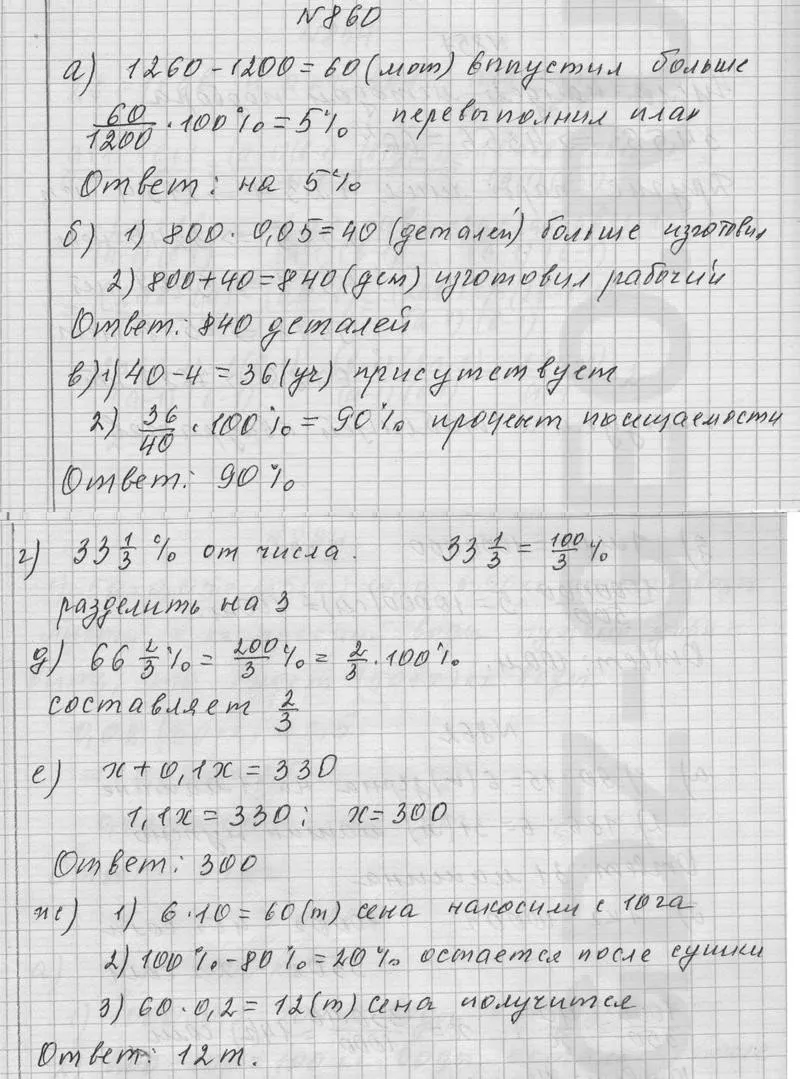 №860
а) 1260 - 1200 = 60 (мот) выпустил больше
60/1200 · 100% = 5% перевыполнил план
Ответ: на 5%
б) 1) 800 · 0,05 = 40 (деталей) больше изготовил
2) 800 + 40 = 840 (дет) изготовил рабочий
Ответ: 840 деталей
в) 1) 40 - 4 = 36 (уч) присутствует
2) 36/40 · 100% = 90% процент посещаемости
Ответ: 90%
г) 33 1/3 % от числа. 33 1/3 = 100/3 %
разделить на 3
д) 66 2/3 % = 200/3 % = 2/3 · 100%
составляет 2/3
е) x + 0,1x = 330
1,1x = 330; x = 300
Ответ: 300
ж) 1) 6 · 10 = 60 (т) сена накосили с 10 га
2) 100% - 80% = 20% остается после сушки
3) 60 · 0,2 = 12 (т) сена получится
Ответ: 12 т.